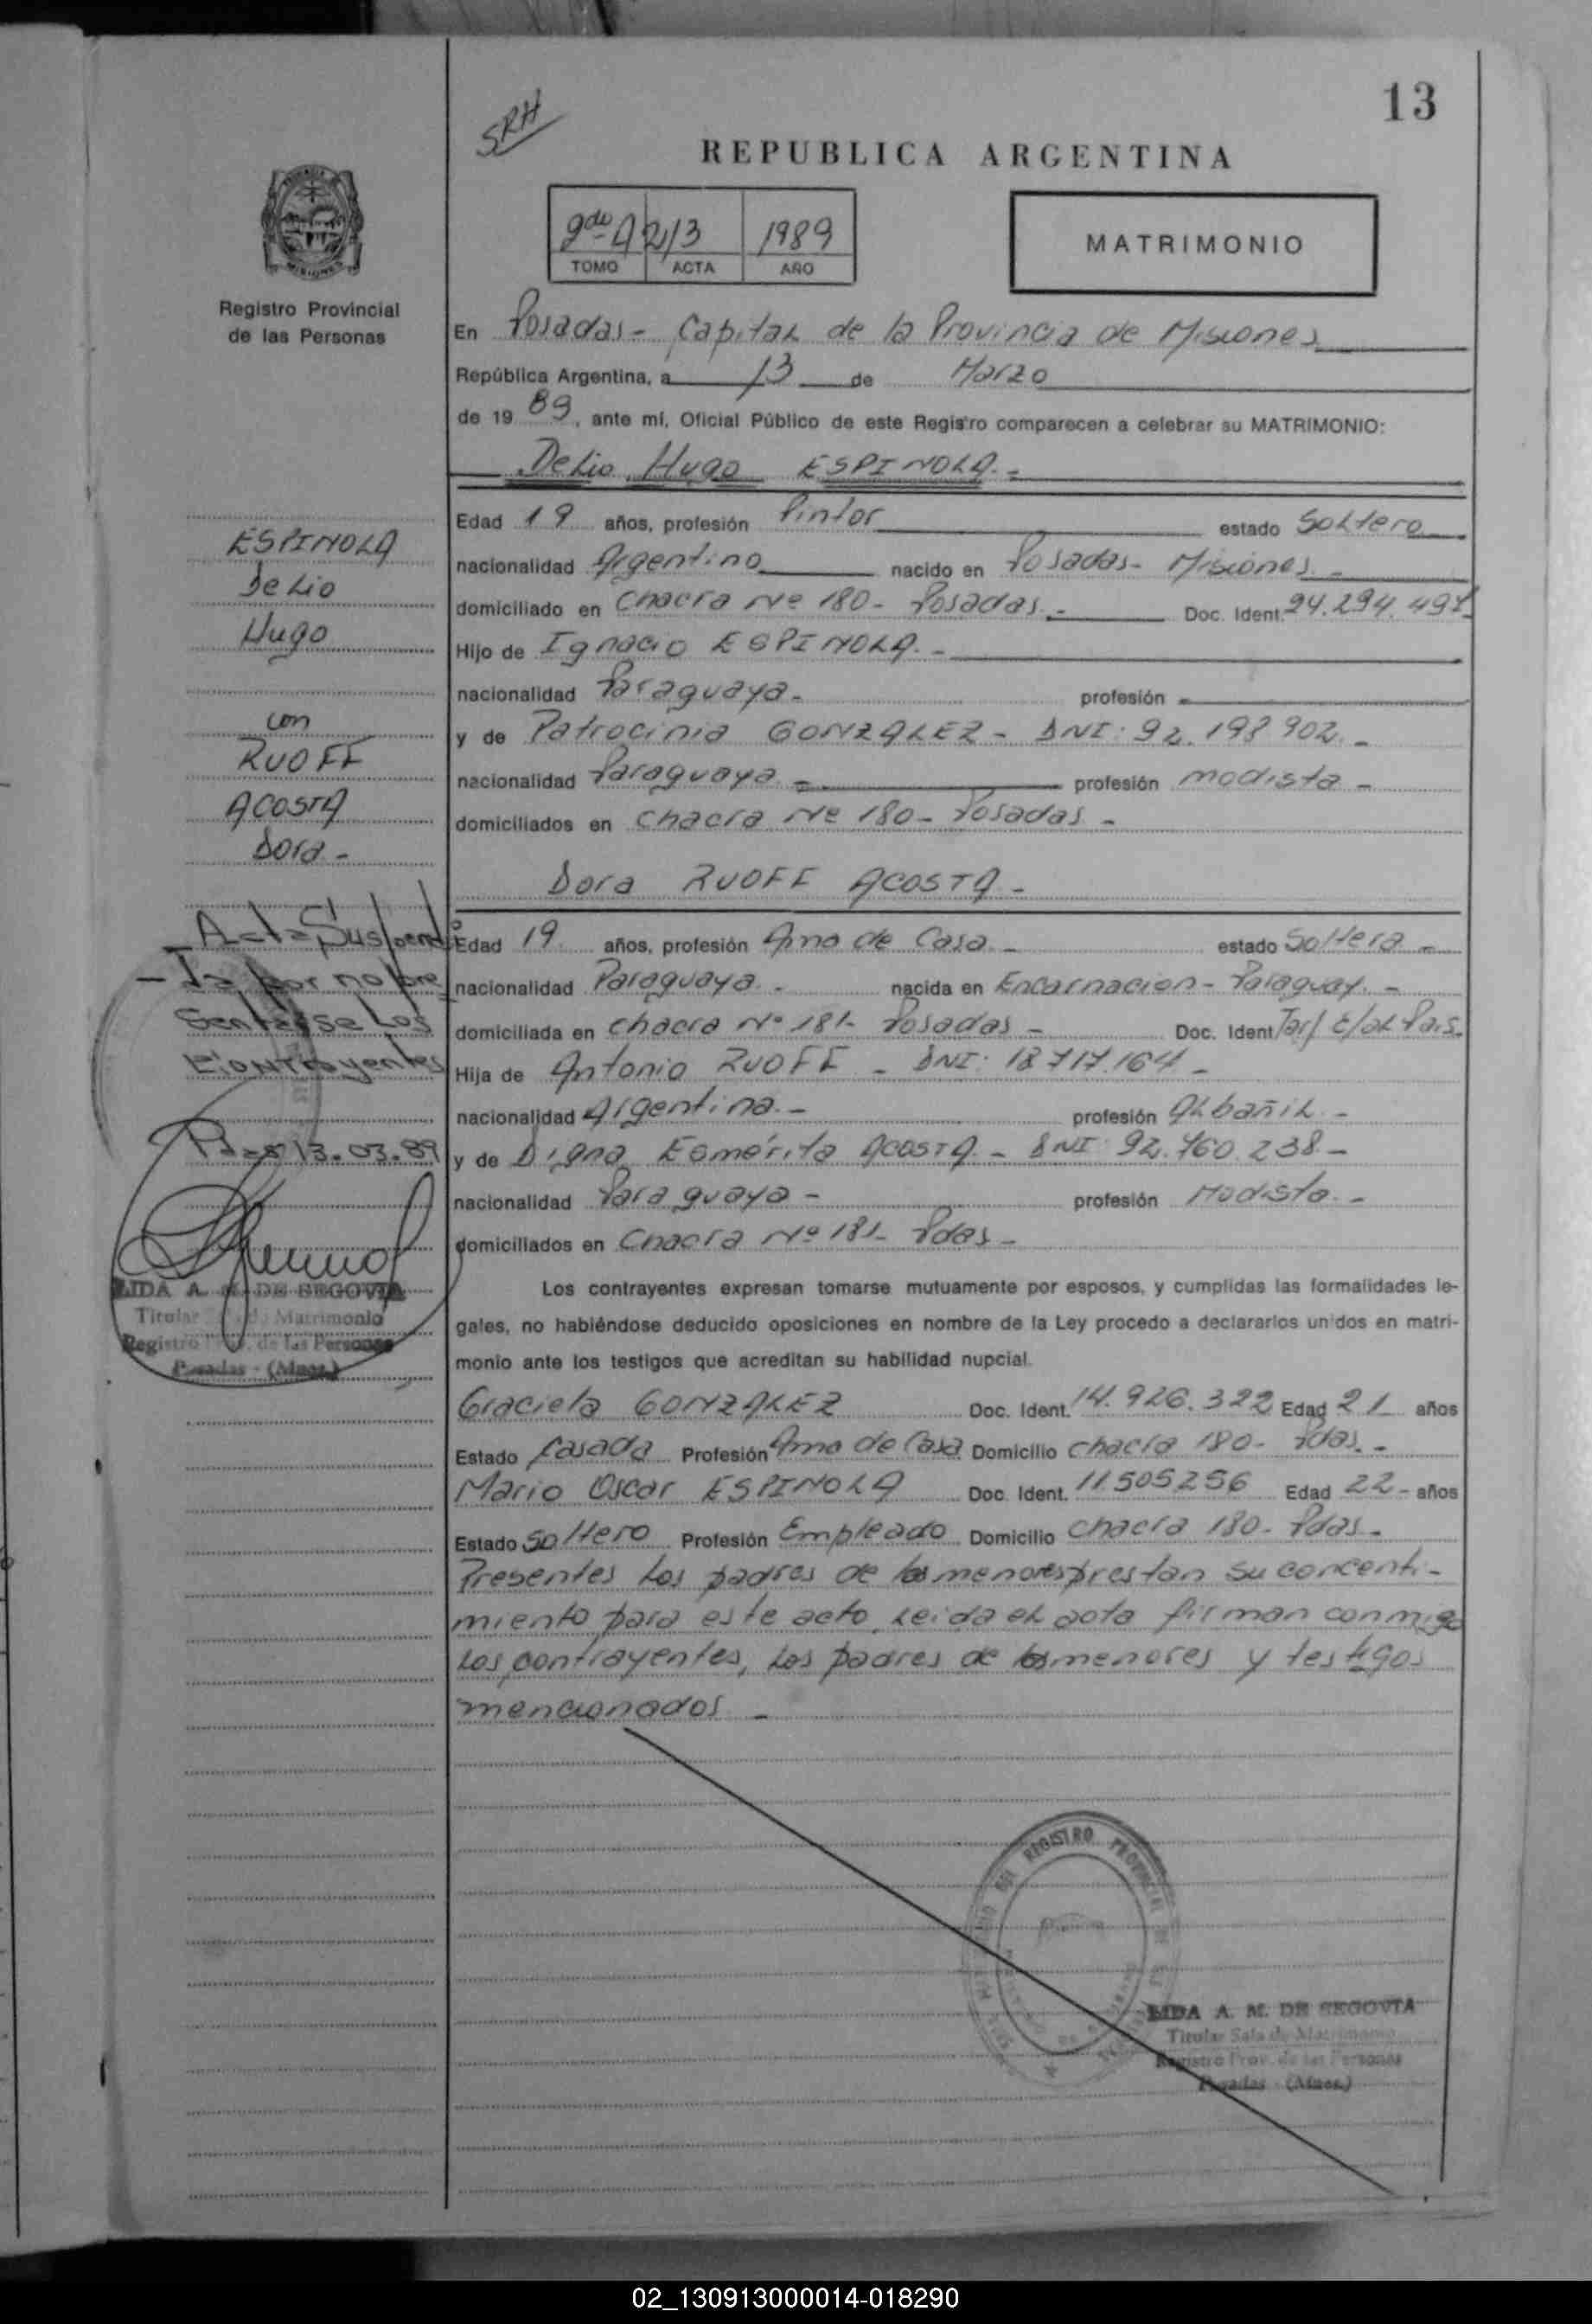 13
SRH
REPUBLICA ARGENTINA
2do A 213 1989
TOMO ACTA AÑO
MATRIMONIO
Registro Provincial
de las Personas
En Posadas - Capital de la Provincia de Misiones
República Argentina, a 13 de Marzo
de 19 89, ante mí, Oficial Público de este Registro comparecen a celebrar su MATRIMONIO:
Delio Hugo ESPINOLA.-
Edad 19 años, profesión Pintor estado Soltero
nacionalidad Argentino nacido en Posadas - Misiones -
domiciliado en Chacra Nº 180 - Posadas - Doc. Ident. 24.294.491
Hijo de Ignacio ESPINOLA.-
nacionalidad Paraguaya - profesión
y de Patrocinia GONZALEZ - DNI: 92.198 902.-
nacionalidad Paraguaya - profesión modista -
domiciliados en Chacra Nº 180 - Posadas -
Dora RUOFF ACOSTA -
Edad 19 años, profesión Ama de Casa - estado Soltera -
nacionalidad Paraguaya - nacida en Encarnacion - Paraguay -
domiciliada en chacra Nº 181 - Posadas - Doc. Ident
Hija de Antonio RUOFF - DNI: 18 717.164 -
nacionalidad Argentina - profesión Albañil -
y de Digna Esmérita ACOSTA - DNI 92.760.238 -
nacionalidad Paraguaya - profesión Modista -
domiciliados en Chacra Nº 181 - Pdas -
Los contrayentes expresan tomarse mutuamente por esposos, y cumplidas las formalidades le-
gales, no habiéndose deducido oposiciones en nombre de la Ley procedo a declararlos unidos en matri-
monio ante los testigos que acreditan su habilidad nupcial.
Graciela GONZALEZ Doc. Ident. 14.926.322 Edad 21 años
Estado Casada Profesión Ama de Casa Domicilio chacra 180 - Pdas. -
Mario Oscar ESPINOLA Doc. Ident. 11.505256 Edad 22 - años
Estado Soltero Profesión Empleado Domicilio chacra 180 - Pdas -
Presentes los padres de los menores prestan su concenti-
miento para este acto, leida el acta firman conmigo
los contrayentes, los padres de los menores y testigos
mencionados -
ESPINOLA
Delio
Hugo
con
RUOFF
ACOSTA
Dora -
Acta Suspendi
da por no pre
sentarse Los
Contrayentes
Pdas 13.03.89
LIDA A. M. DE SEGOVIA
Titular Matrimonio
Registro de las Personas
Posadas - (Mnes.)
REGISTRO PROVINCIAL DE LAS
LIDA A. M. DE SEGOVIA
Titular Sala de Matrimonio
Registro Prov. de las Personas
Posadas - (Mnes.)
02_130913000014-018290